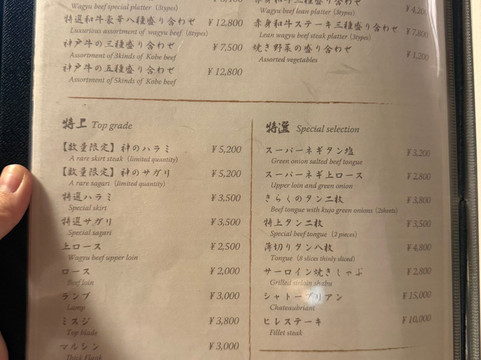 Wagyu beef special platter (3types)
特選和牛豪華八種盛り合わせ ¥12,800
Luxurious assortment of wagyu beef (8types)
神戸牛の三種盛り合わせ ¥7,500
Assortment of 3kinds of Kobe beef
神戸牛の五種盛り合わせ ¥12,800
Assortment of 5kinds of Kobe beef
Wagyu beef lean platter (3types)
赤身和牛ステーキ三種盛り合わせ ¥7,800
Lean wagyu beef steak platter (3types)
焼き野菜の盛り合わせ ¥1,200
Assorted vegetables
特上 Top grade
【数量限定】神のハラミ ¥5,200
A rare skirt steak (limited quantity)
【数量限定】神のサガリ ¥5,200
A rare sagari (limited quantity)
特選ハラミ ¥3,500
Special skirt
特選サガリ ¥3,500
Special sagari
上ロース ¥2,500
Wagyu beef upper loin
ロース ¥2,000
Beef loin
ランプ ¥3,000
Lamp
ミスジ ¥3,800
Top blade
マルシン ¥3,000
Thick flank
特選 Special selection
スーパーネギタン塩 ¥3,200
Green onion salted beef tongue
スーパーネギ上ロース ¥2,800
Upper loin and green onion
きらくのタン二枚 ¥3,800
Beef tongue with kujo green onions (2sheets)
特上タン二枚 ¥3,500
Special beef tongue (2 pieces)
薄切りタン八枚 ¥4,800
Tongue (8 slices thinly sliced)
サーロイン焼きしゃぶ ¥2,800
Grilled sirloin shabu
シャトーブリアン ¥15,000
Chateaubriant
ヒレステーキ ¥10,000
Fillet steak